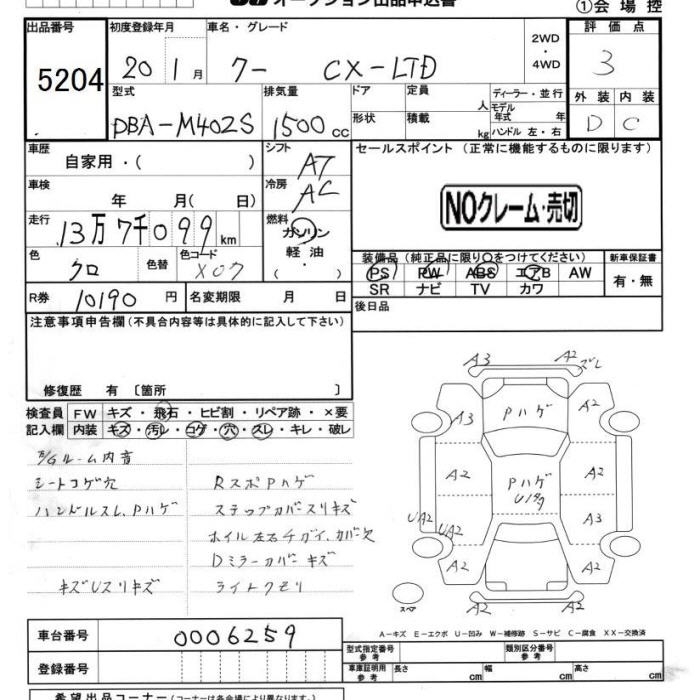 オークション出品申込書
①会場控
出品番号 5204
初度登録年月 20 1月
車名・グレード クー CX-LTD
2WD・4WD
評価点 3
外装 D 内装 C
型式 DBA-M402S
排気量 1500cc
ドア 形状
定員 人
積載 kg
ディーラー・並行
モデル年式 年
ハンドル 左・右
車歴 自家用・( )
シフト AT
セールスポイント (正常に機能するものに限ります)
NOクレーム・売切
車検 年 月( 日)
冷房 AC
走行 13万7千099km
燃料 ガソリン 軽油 ( ・ )
色 クロ 色替 色コード X07
装備品 (純正品に限り○をつけてください)
新車保証書 有・無
PS PW ABS エアB AW
SR ナビ TV カワ
R券 10190円
名変期限 月 日
後日品
注意事項申告欄(不具合内容等は具体的に記入して下さい)
修復歴 有 〔箇所 〕
検査員記入欄
FW キズ・飛石・ヒビ割・リペア跡・×要
内装 キズ・汚レ・コゲ・穴・スレ・キレ・破レ
ルーム内音
シートコゲ穴
ハンドルスレ、Pハゲ
キズUスリキズ
RスポPハゲ
ステップカバースリキズ
ホイル左右チガイ、カバー欠
Dミラーカバーキズ
ライトクモリ
A3 A2 ズレ
A3 Pハゲ A2
A2 Pハゲ A2
A3
UA2 UA2
A2 A2
A2 A2
スペア
A-キズ E-エクボ U-凹み W-補修跡 S-サビ C-腐食 XX-交換済
車台番号 0006259
登録番号
型式指定番号 参考
類別区分番号 参考
車庫証明用 参考 長さ cm 幅 cm 高さ cm
希望出品コーナー(コーナーは各会場により異なります)